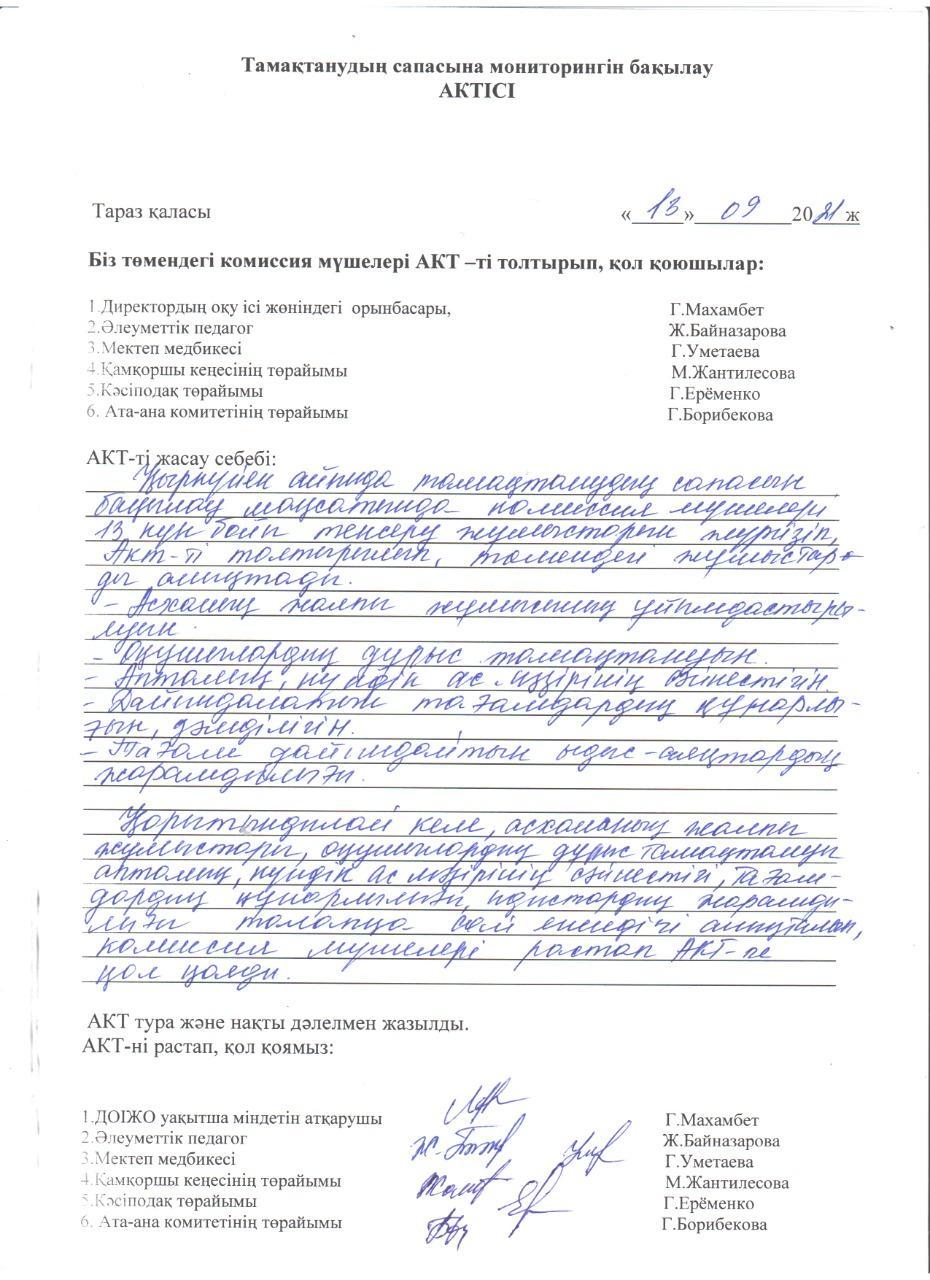 Тамақтанудың сапасына мониторингін бақылау
АКТІСІ
Тараз қаласы «13» 09 2021 ж
Біз төмендегі комиссия мүшелері АКТ –ті толтырып, қол қоюшылар:
1.Директордың оқу ісі жөніндегі орынбасары, Г.Махамбет
2.Әлеуметтік педагог Ж.Байназарова
3.Мектеп медбикесі Г.Уметаева
4.Қамқоршы кеңесінің төрайымы М.Жантилесова
5.Кәсіподақ төрайымы Г.Ерёменко
6. Ата-ана комитетінің төрайымы Г.Борибекова
АКТ-ті жасау себебі:
Қыркүйек айында тамақтанудың сапасын
бақылау мақсатында комиссия мүшелері
13 күн бойы тексеру жұмыстарын жүргізіп,
Акт-ті толтырылып, төмендегі жұмыстар-
ды анықтады.
- Асханың жалпы жұмысының ұйымдастыры-
луын.
- Оқушылардың дұрыс тамақтануын.
- Апталық, күндік ас мәзірінің сәйкестігін.
- Дайындалатын тағамдардың құнарлы-
ғын, дәмділігін.
- Тағам дайындайтын ыдыс-аяқтардың
жарамдылығы.
Қорытындылай келе, асхананың жалпы
жұмыстары, оқушылардың дұрыс тамақтануы
апталық, күндік ас мәзірінің сәйкестігі, тағам-
дардың құнарлығы, ыдыстардың жарамды-
лығы талапқа сай екендігі анықталып,
комиссия мүшелері растап АКТ-ке
қол қояды.
АКТ тура және нақты дәлелмен жазылды.
АКТ-ні растап, қол қоямыз:
1.ДОІЖО уақытша міндетін атқарушы Г.Махамбет
2.Әлеуметтік педагог Ж.Байназарова
3.Мектеп медбикесі Г.Уметаева
4.Қамқоршы кеңесінің төрайымы М.Жантилесова
5.Кәсіподақ төрайымы Г.Ерёменко
6. Ата-ана комитетінің төрайымы Г.Борибекова